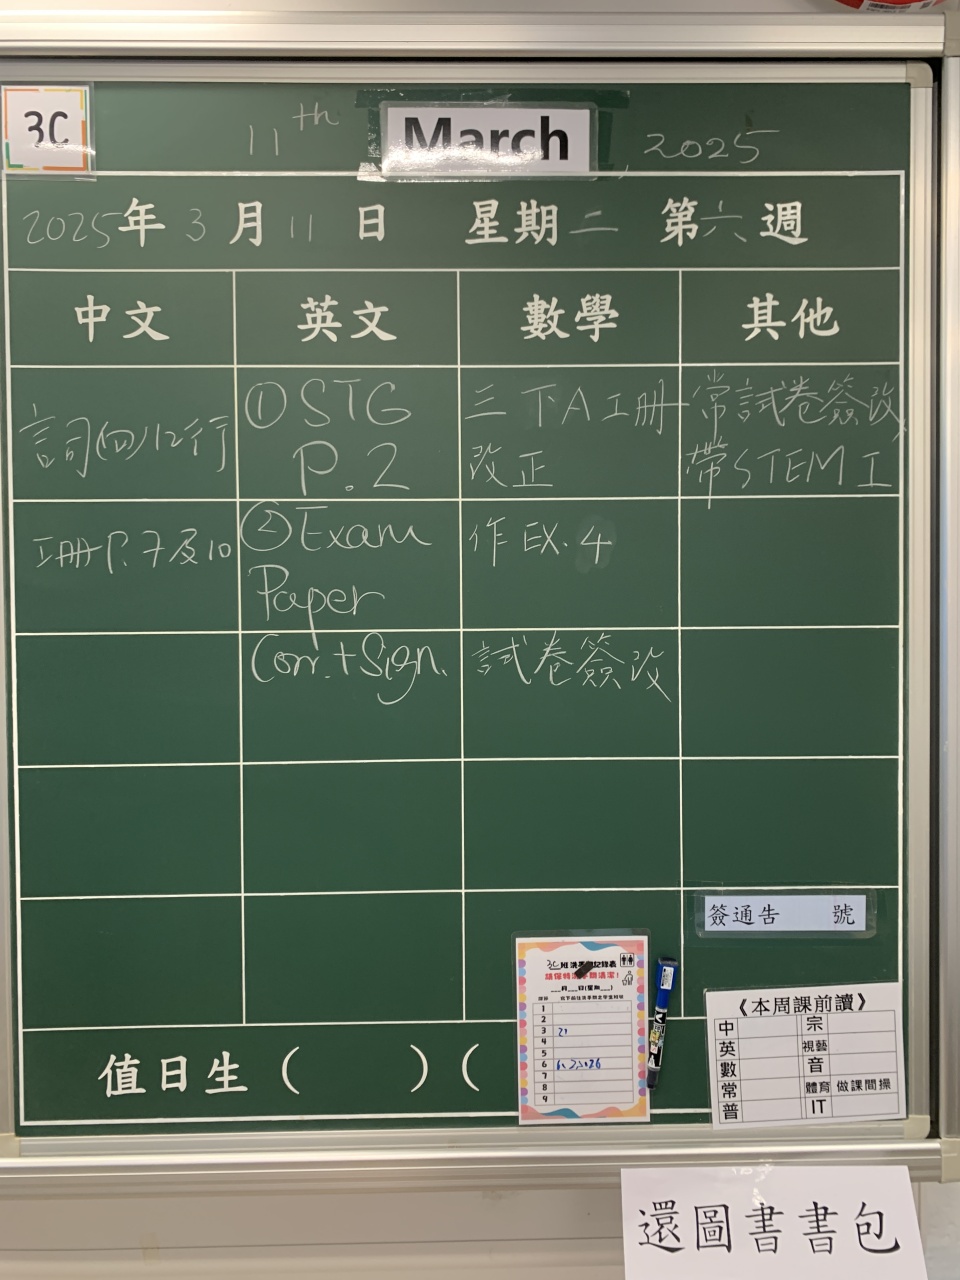 3C
11th March, 2025
2025年3月11日 星期二 第六週
中文 英文 數學 其他
言詞(四)12行
工冊P.7及10
①STG
P.2
②Exam
Paper
Corr.+Sign.
三下A工冊
改正
作 EX. 4
試卷簽改
常試卷簽改
帶STEM工
簽通告 號
值日生( )(
3C班洗手間記錄表
請保持洗手間清潔!
___月___日(星期___)
1
2
3 21
4
5
6
7
8
9
《本周課前讀》
中 宗
英 視藝
數 音
常 體育 做課間操
普 IT
還圖書書包